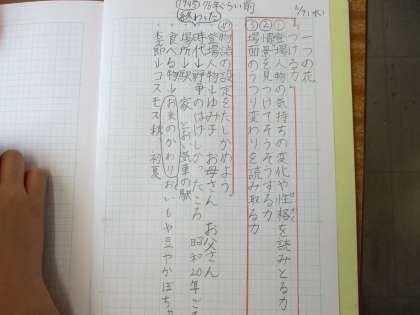 一つの花
つける力
①登場人物の気持ちの変化や性格を読みとる力
②情景を見つけてそうぞうする力
③場面のうつり変わりを読み取る力
物語の設定をたしかめよう
登場人物→ゆみ子 お母さん お父さん
時代→戦争のはげしかったころ 昭和20年ごろ
(1945) 75年ぐらい前
終わった
場所→家 とおい汽車の駅
食べる物→お米のかわりおいもや豆やかぼちゃ
季節→コスモス秋 初夏